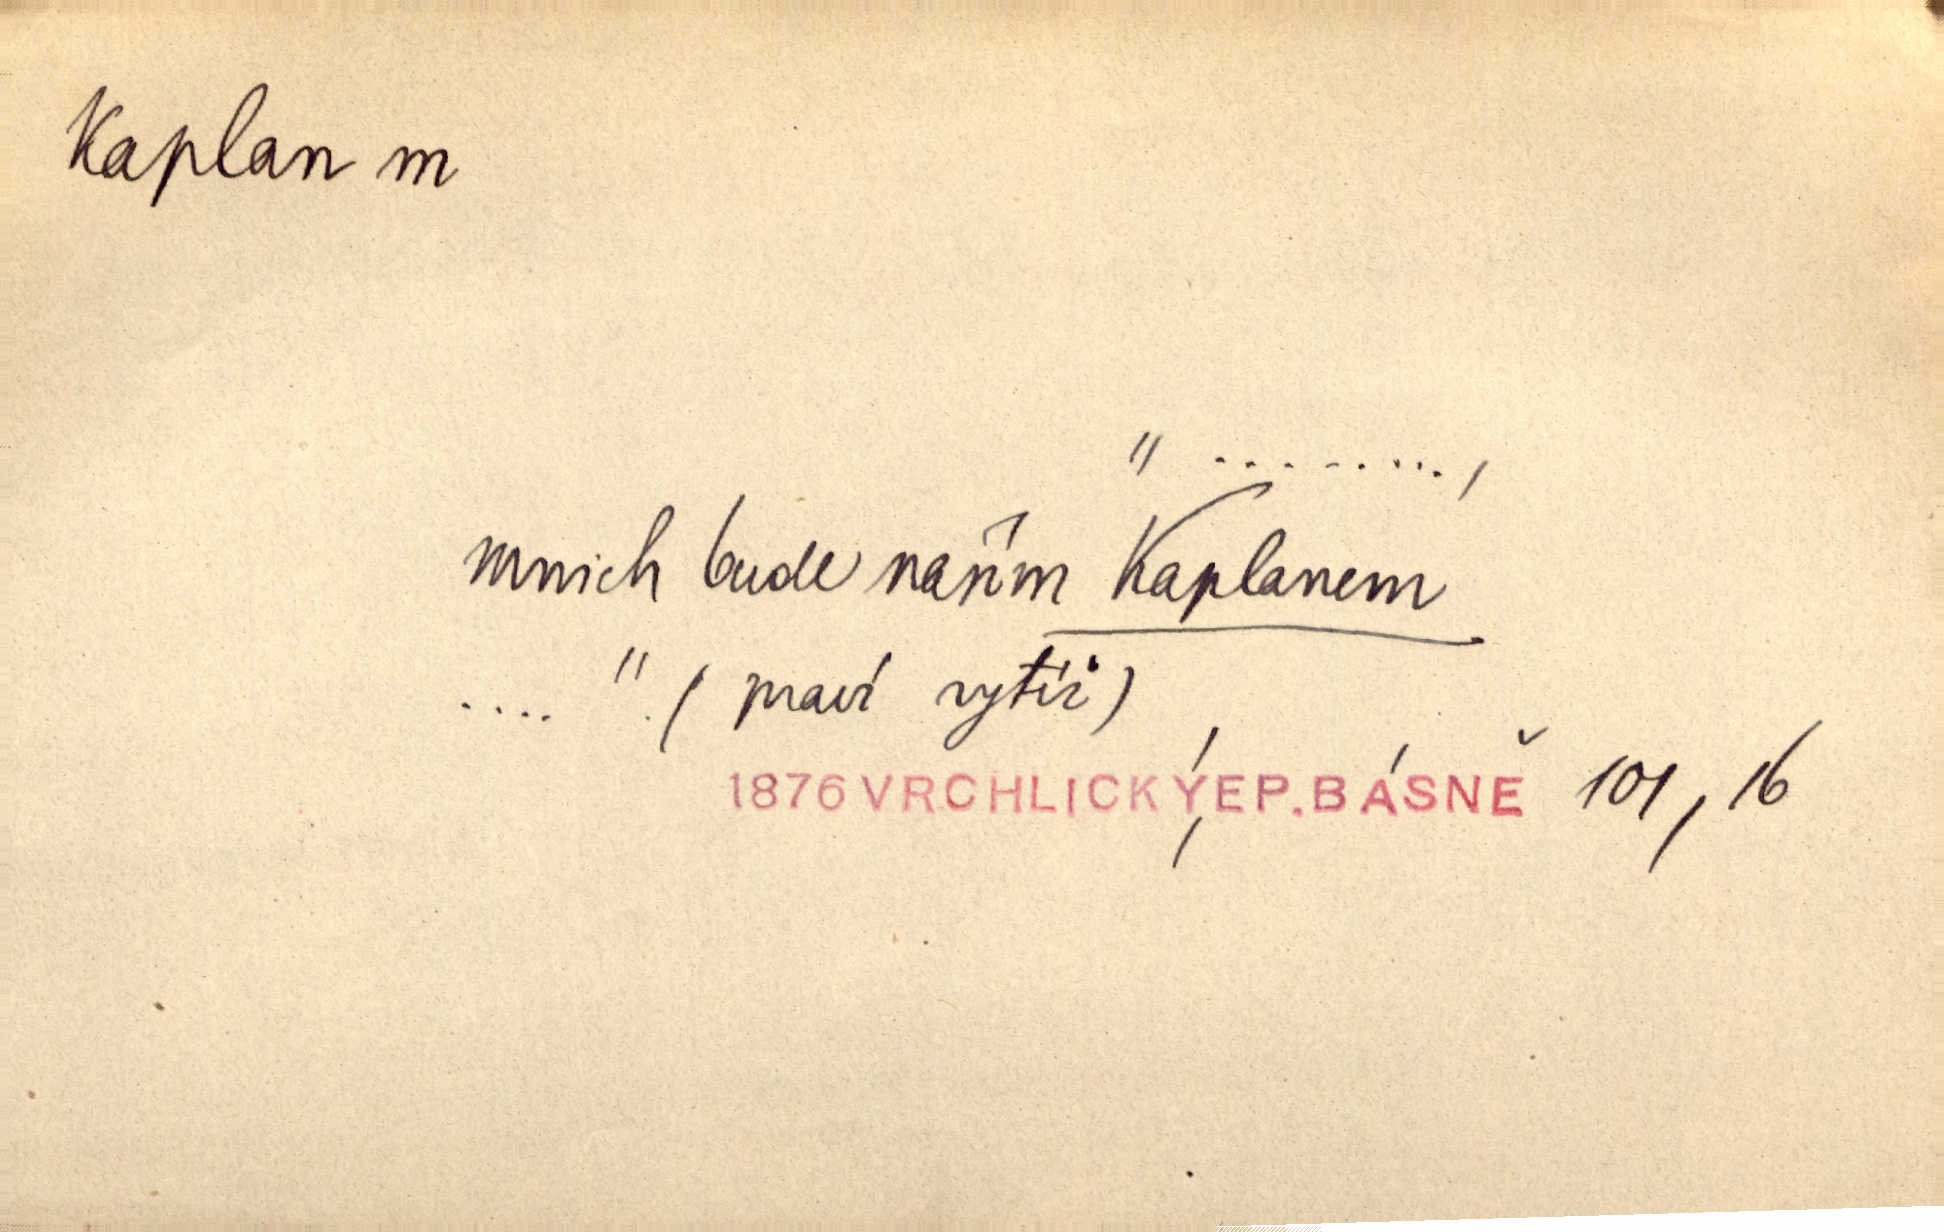 Kaplan m
" . . . . . . . . . ,
mnich bude naším Kaplanem
. . . . " . ( praví rytíř )
1876 VRCHLICKÝ, EP. BÁSNĚ 101, 16